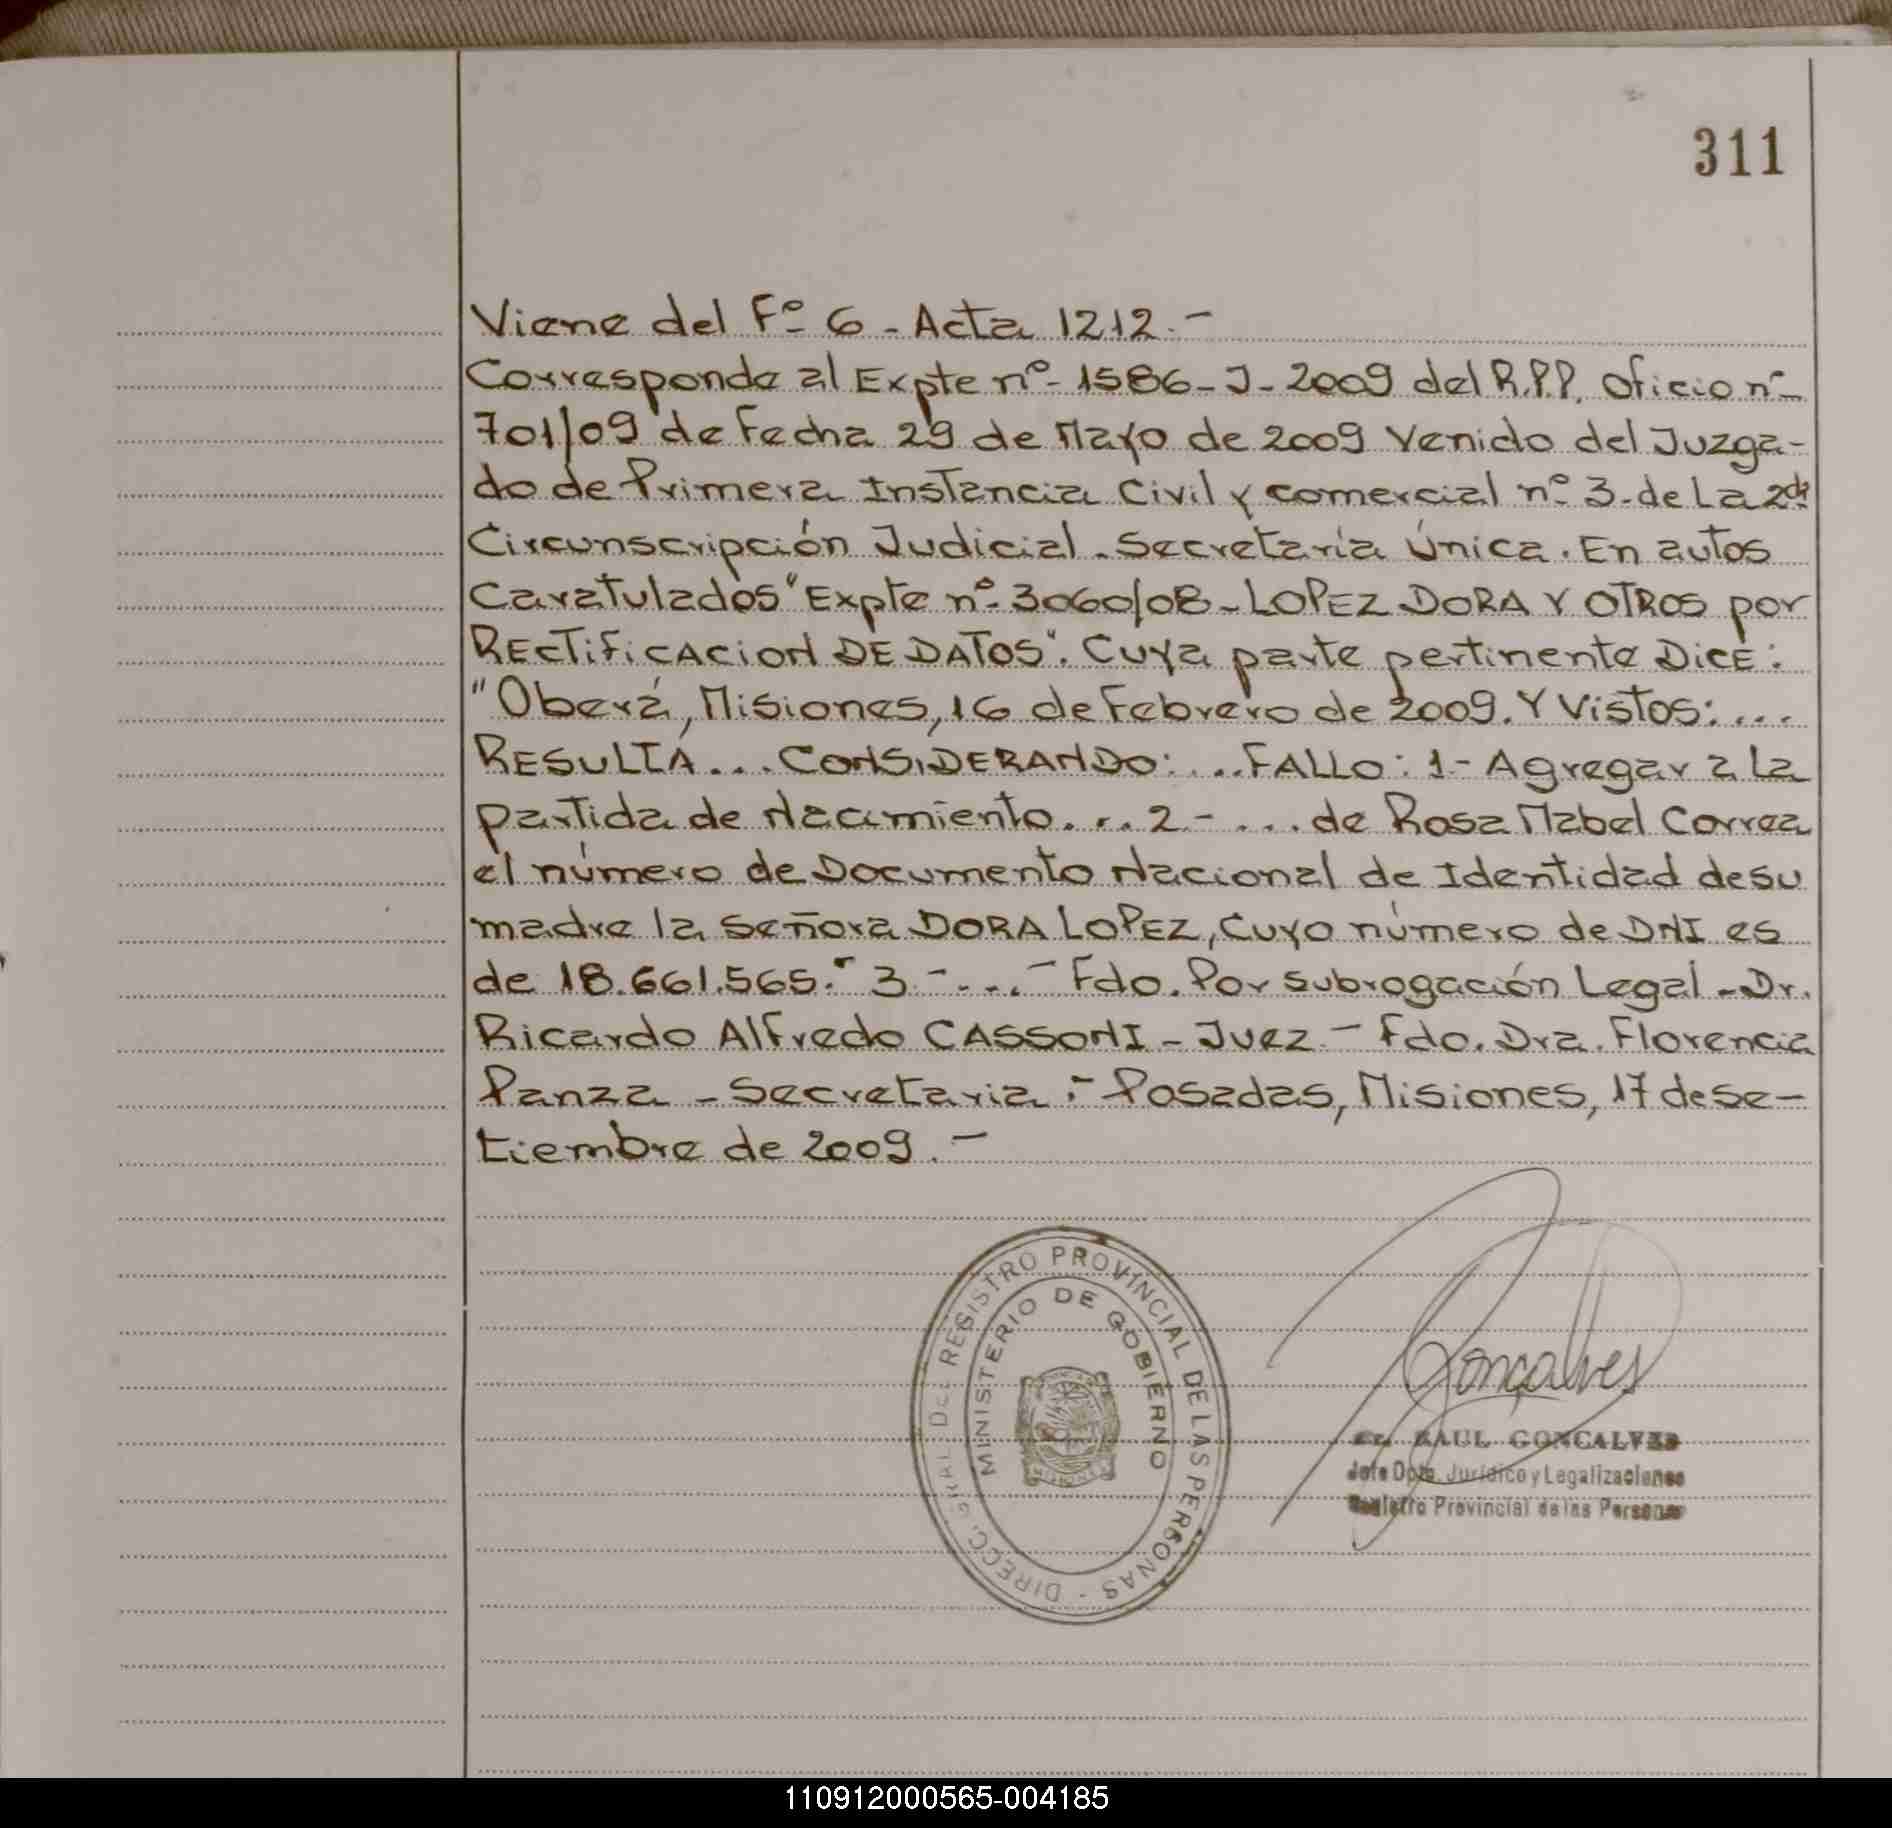 311
Viene del Fº 6 - Acta 1212.-
Corresponde al Expte nº- 1586-J-2009 del R.P.P. Oficio nº-
701/09 de Fecha 29 de Mayo de 2009 Venido del Juzga-
do de Primera Instancia Civil y comercial nº 3-de La 2da
Circunscripción Judicial-Secretaría Única. En autos
Caratulados "Expte nº-3060/08-LOPEZ DORA Y OTROS por
RECTIFICACION DE DATOS". Cuya parte pertinente DICE:
"Oberá, Misiones, 16 de Febrero de 2009. Y Vistos:...
RESULTA... CONSIDERANDO:...FALLO: 1- Agregar a La
partida de Nacimiento... 2-... de Rosa Mabel Correa
el número de Documento Nacional de Identidad de su
madre la Señora DORA LOPEZ, Cuyo número de DNI es
de 18.661.565.- 3.-...- Fdo. Por subrogación Legal-Dr.
Ricardo Alfredo CASSONI-Juez.- Fdo. Dra. Florencia
Panza-Secretaria.- Posadas, Misiones, 17 de se-
tiembre de 2009.-
DIRECC. GRAL. DEL REGISTRO PROVINCIAL DE LAS PERSONAS -
MINISTERIO DE GOBIERNO
MISIONES
Gonçalves
RAUL GONCALVES
Jefe Dpto. Jurídico y Legalizaciones
Registro Provincial de las Personas
110912000565-004185